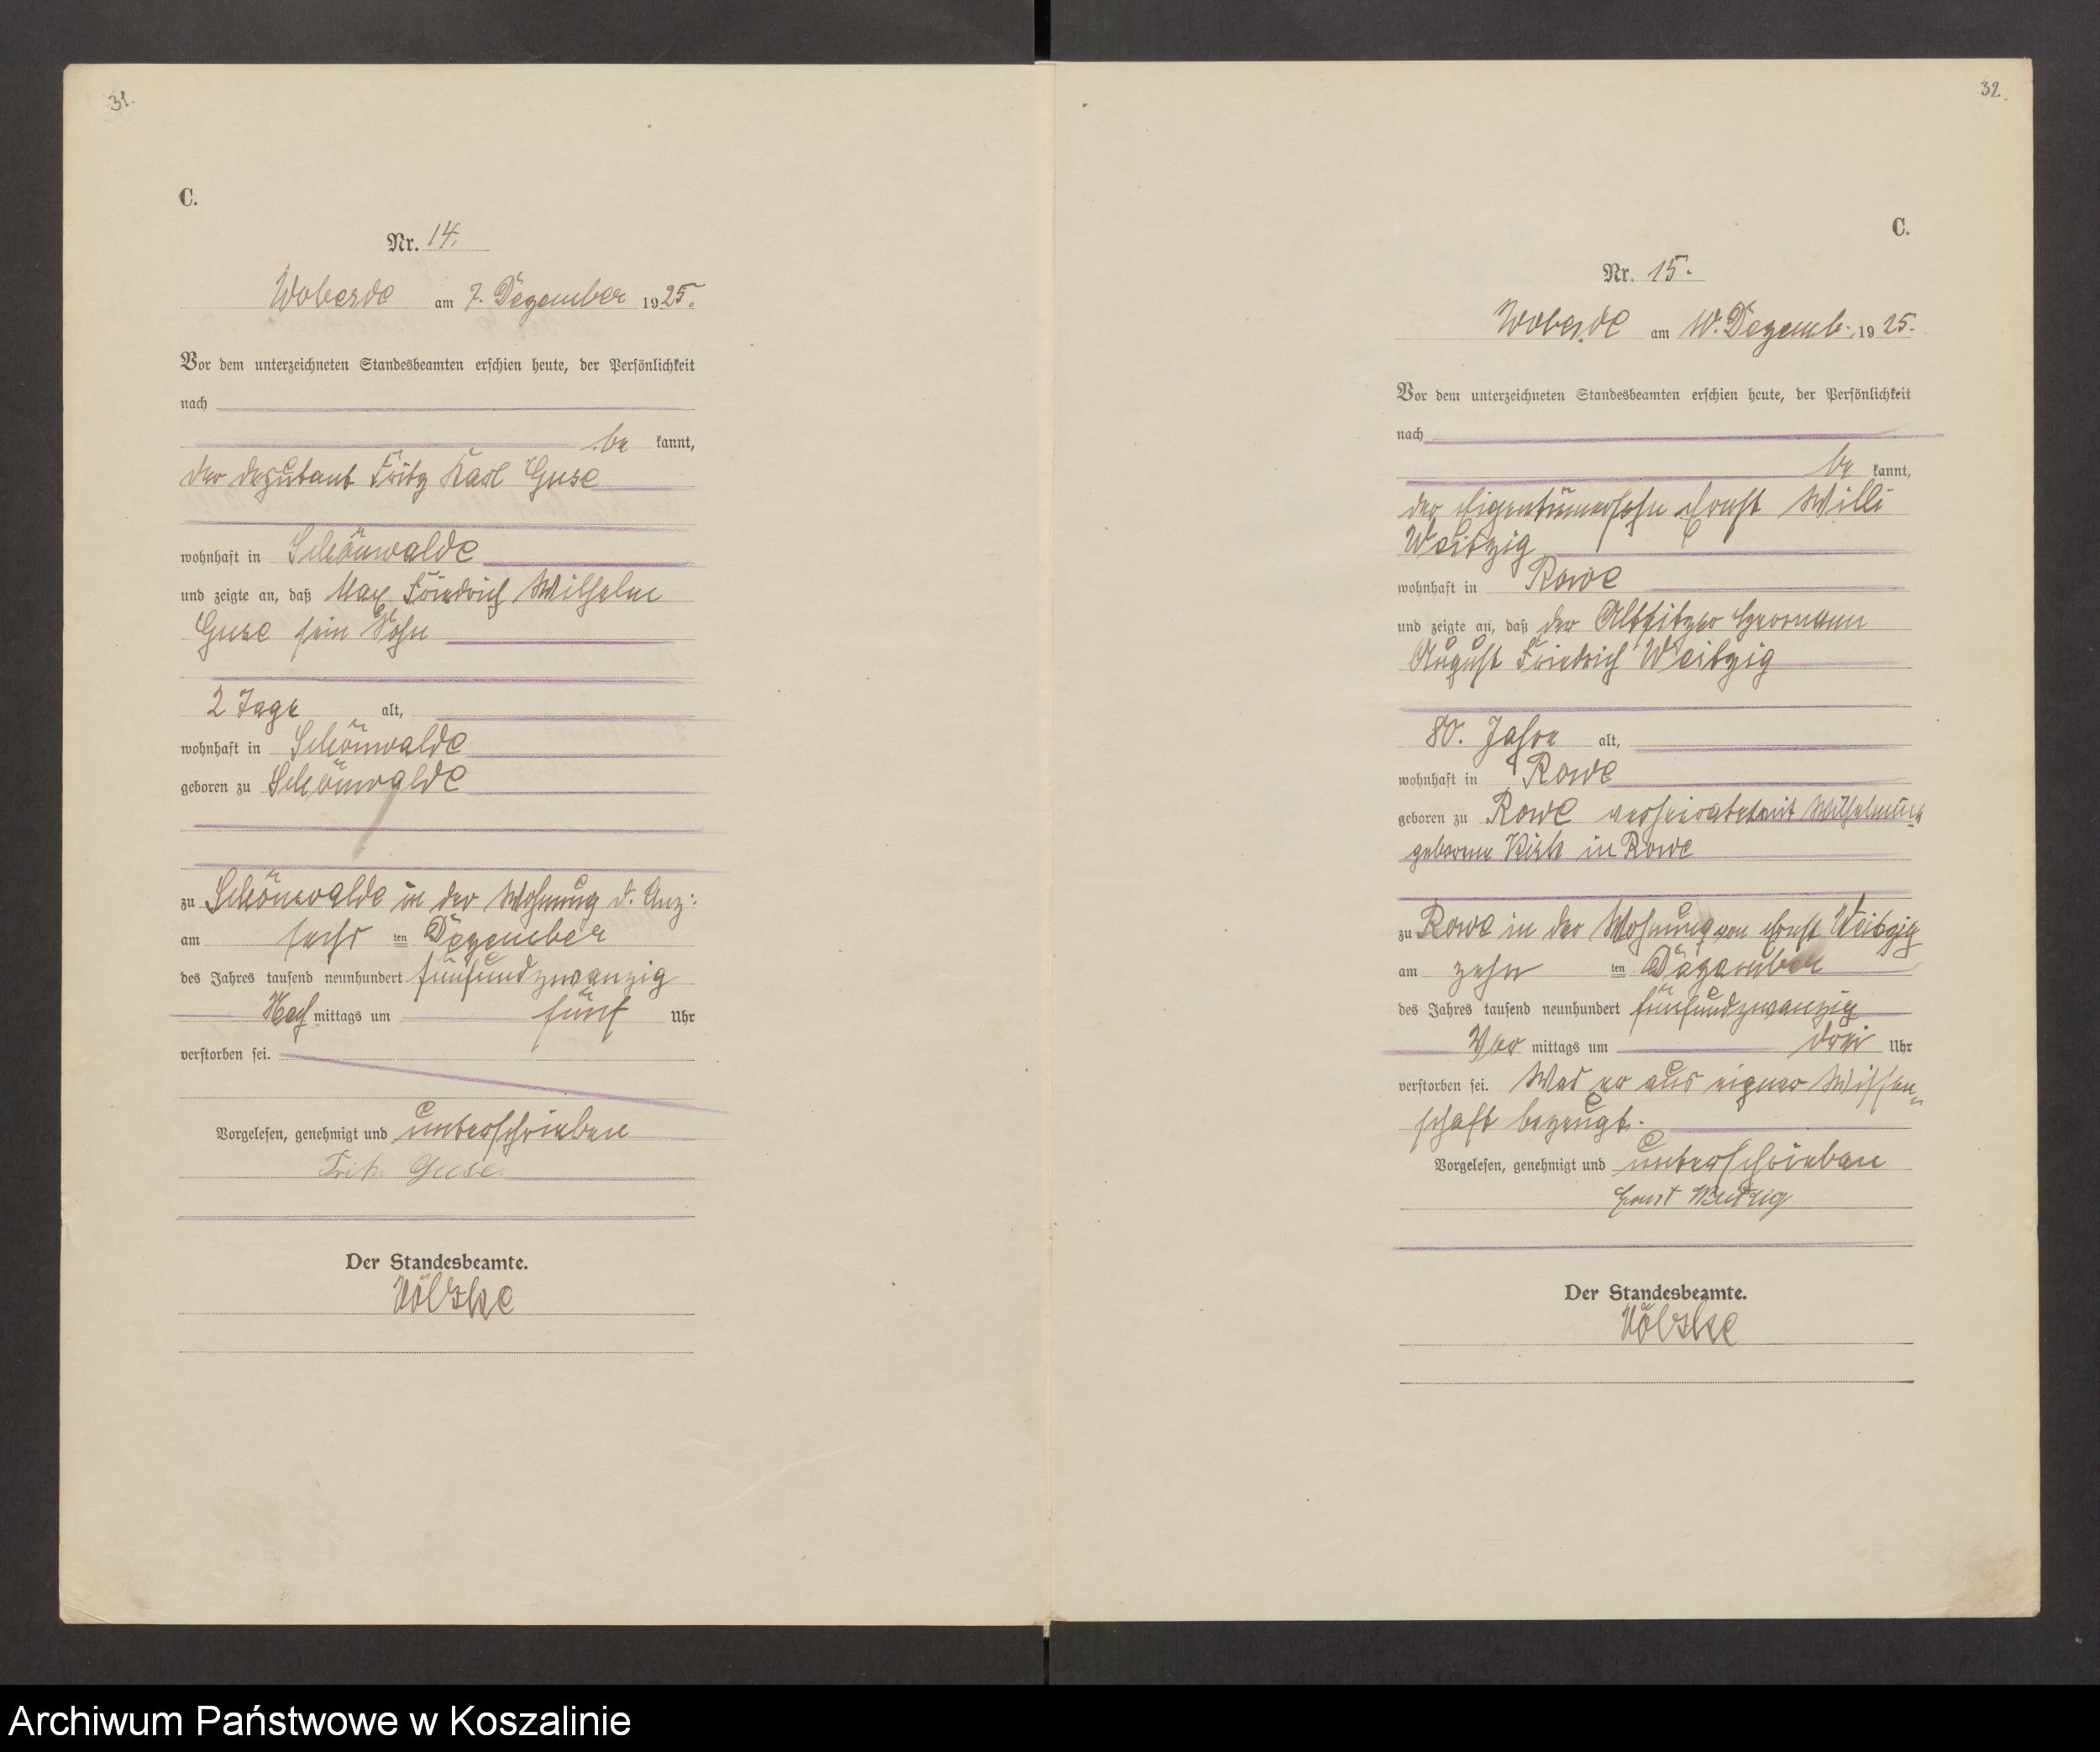 31.
C.
Nr. 14.
Woberde am 7. Dezember 1925.
Vor dem unterzeichneten Standesbeamten erschien heute, der Persönlichkeit
nach
be kannt,
der Deputant Fritz Karl Guse
wohnhaft in Schönwalde
und zeigte an, daß Max Friedrich Wilhelm
Guse sein Sohn
2 Tage alt,
wohnhaft in Schönwalde
geboren zu Schönwalde
zu Schönwalde in der Wohnung d. Anz:
am sechs ten Dezember
des Jahres tausend neunhundert fünfundzwanzig
Nach mittags um fünf Uhr
verstorben sei.
Vorgelesen, genehmigt und unterschrieben
Fritz Guse.
Der Standesbeamte.
Völzke
32.
C.
Nr. 15.
Woberde am 10. Dezemb. 1925.
Vor dem unterzeichneten Standesbeamten erschien heute, der Persönlichkeit
nach
be kannt,
der Eigentümersohn Ernst Willi
Weitzig
wohnhaft in Rowe
und zeigte an, daß der Altsitzer Hermann
August Friedrich Weitzig
80. Jahre alt,
wohnhaft in Rowe
geboren zu Rowe verheiratet mit Wilhelmine
geborene in Rowe
zu Rowe in der Wohnung von Ernst Weitzig
am zehn ten Dezember
des Jahres tausend neunhundert fünfundzwanzig
Vor mittags um drei Uhr
verstorben sei. Was er aus eigner Wissen„
schaft bezeugt.
Vorgelesen, genehmigt und unterschrieben
Ernst Weitzig
Der Standesbeamte.
Völzke
Archiwum Państwowe w Koszalinie